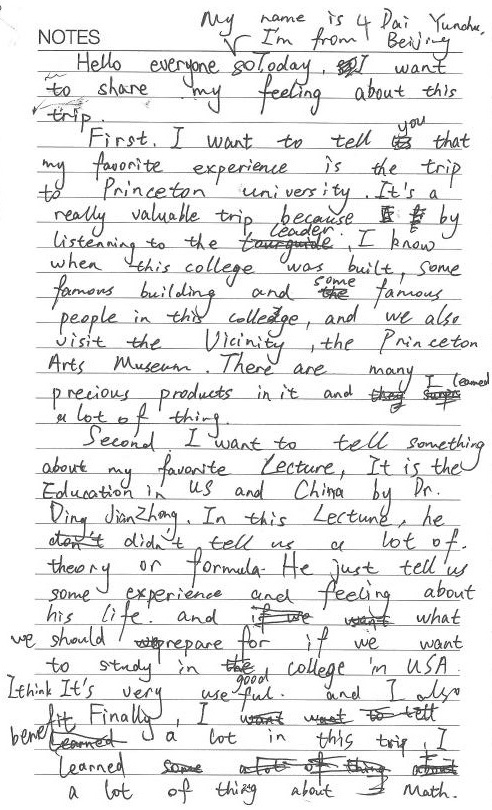 My name is Dai Yunshu,
NOTES I'm from Beijing
Hello everyone so Today, I want
to share my feeling about this
trip.
First. I want to tell you that
my favorite experience is the trip
to Princeton university. It's a
really valuable trip because by
listenning to the tourguide leader. I know
when this college was built, some
famous building and the some famous
people in this colledge, and we also
visit the Vicinity, the Princeton
Arts Museum. There are many
precious products in it and they I learned
a lot of thing.
Second I want to tell something
about my favorite Lecture, It is the
Education in US and China by Dr.
Ding JianZhong. In this Lecture, he
don't didn't tell us a lot of.
theory or formula. He just tell us
some experience and feeling about
his life. and if we want what
we should prepare for if we want
to study in the college in USA.
I think It's very useful. good and I also
benefit Finally, I want want to tell
Learned a lot in this trip, I
Learned some a lot of thing about
a lot of thing about Math.